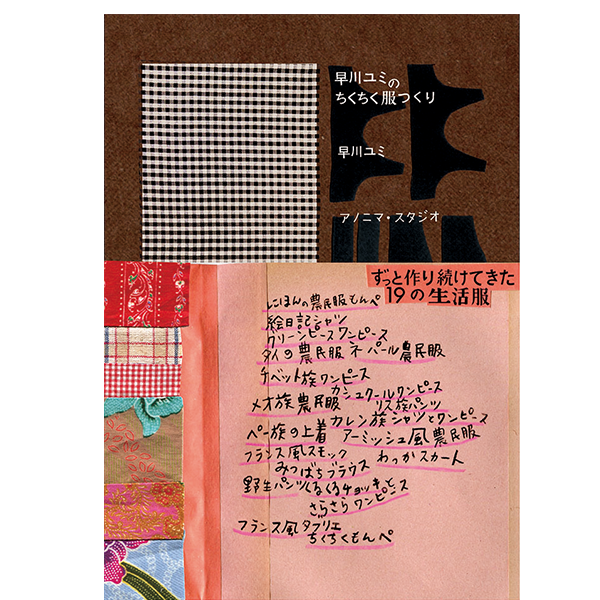 早川ユミの
ちくちく服つくり
早川ユミ
アノニマ・スタジオ
ずっと作り続けてきた
19の生活服
にほんの農民服もんぺ
絵日記シャツ
グリーンピースワンピース
タイの農民服 ネパール農民服
チベット族ワンピース
カシュクールワンピース
メオ族農民服 リス族パンツ
カレン族シャツとワンピース
ペー族の上着 アーミッシュ風農民服
フランス風スモック わっかスカート
みつばちブラウス
野生パンツ くるくるチョッキと
さらさらワンピース
フランス風タブリエ
ちくちくもんペ